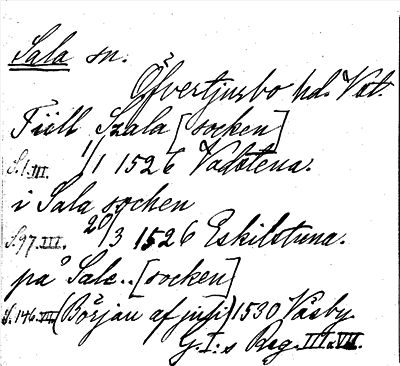 Sala sn.
Öfvertjurbo hd. Vstl.
Tiill Szala [socken]
S.1.III. 1/1 1526 Vadstena.
i Sala sochen
S.97.III. 20/3 1526 Eskilstuna.
på Sale..[socken]
S.146.VII. (Början af juni) 1530 Väsby.
G.I:s Reg. III o. VII.